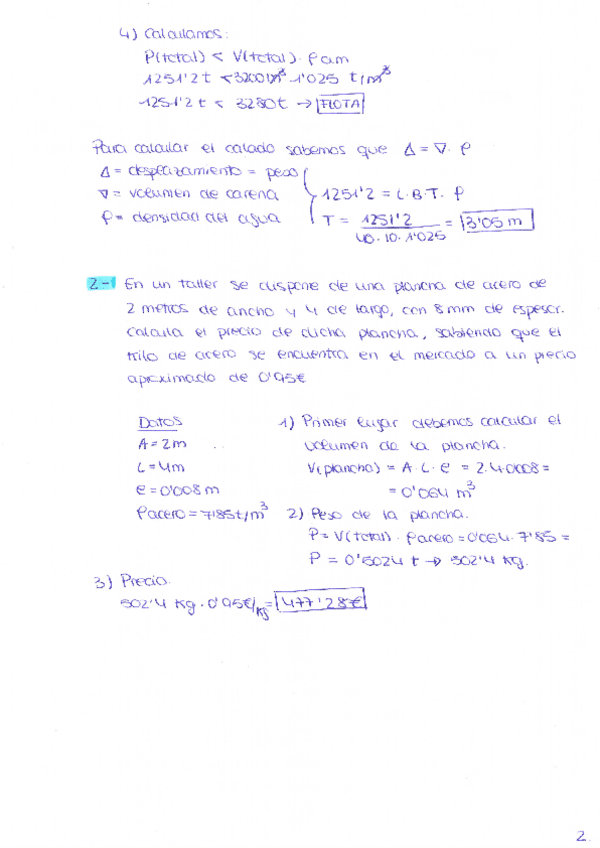 4) Calculamos:
P(total) < V(total) · ρ am
1251'2 t < 3200 m³ · 1'025 t/m³
1251'2 t < 3280 t → FLOTA
Para calcular el calado sabemos que Δ = ∇ · ρ
Δ = desplazamiento = peso
∇ = volumen de carena
ρ = densidad del agua
1251'2 = L · B · T · ρ
T = 1251'2 / 40 · 10 · 1'025 = 3'05 m
2-1 En un taller se dispone de una plancha de acero de
2 metros de ancho y 4 de largo, con 8 mm de espesor.
Calcula el precio de dicha plancha, sabiendo que el
kilo de acero se encuentra en el mercado a un precio
aproximado de 0'95€
Datos
A = 2m
L = 4m
e = 0'008 m
ρacero = 7'85 t/m³
1) Primer lugar debemos calcular el
volumen de la plancha.
V(plancha) = A · L · e = 2 · 4 · 0'008 =
= 0'064 m³
2) Peso de la plancha.
P = V(total) · ρacero = 0'064 · 7'85 =
P = 0'5024 t → 502'4 kg.
3) Precio.
502'4 kg · 0'95 €/kg = 477'28€
2